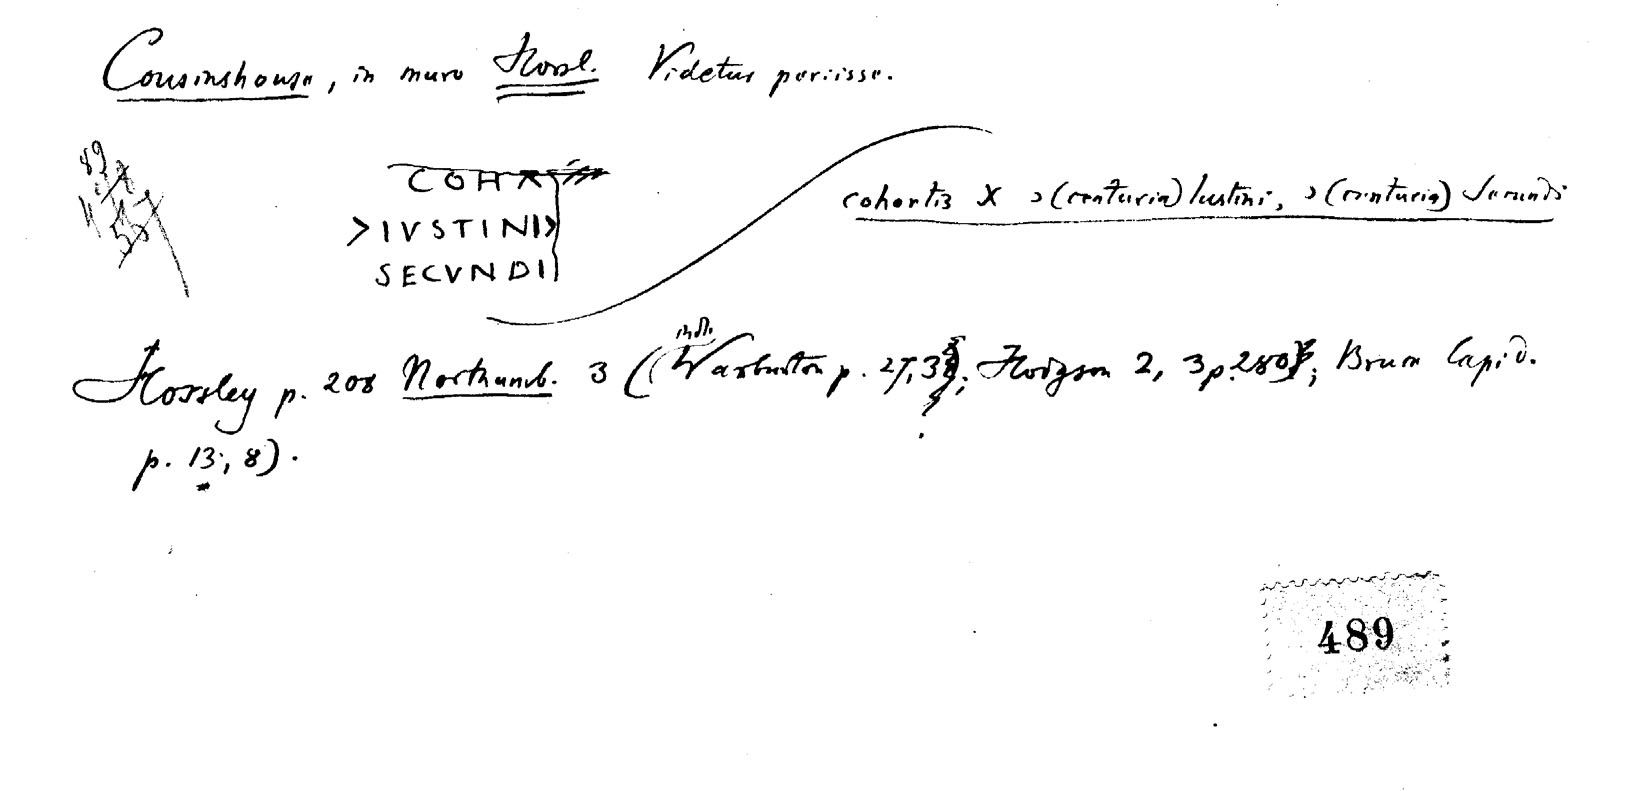 Cousinshouse, in muro Horsl. Videtur periisse.
COH X
>IVSTINI>
SECVNDI
cohortis X >(centuria) Iustini, >(centuria) Secundi
Horsley p. 208 Northumb. 3 (inde Warburton p. 27, 3; Hodgson 2, 3 p. 280; Bruce lapid.
p. 13, 8).
489